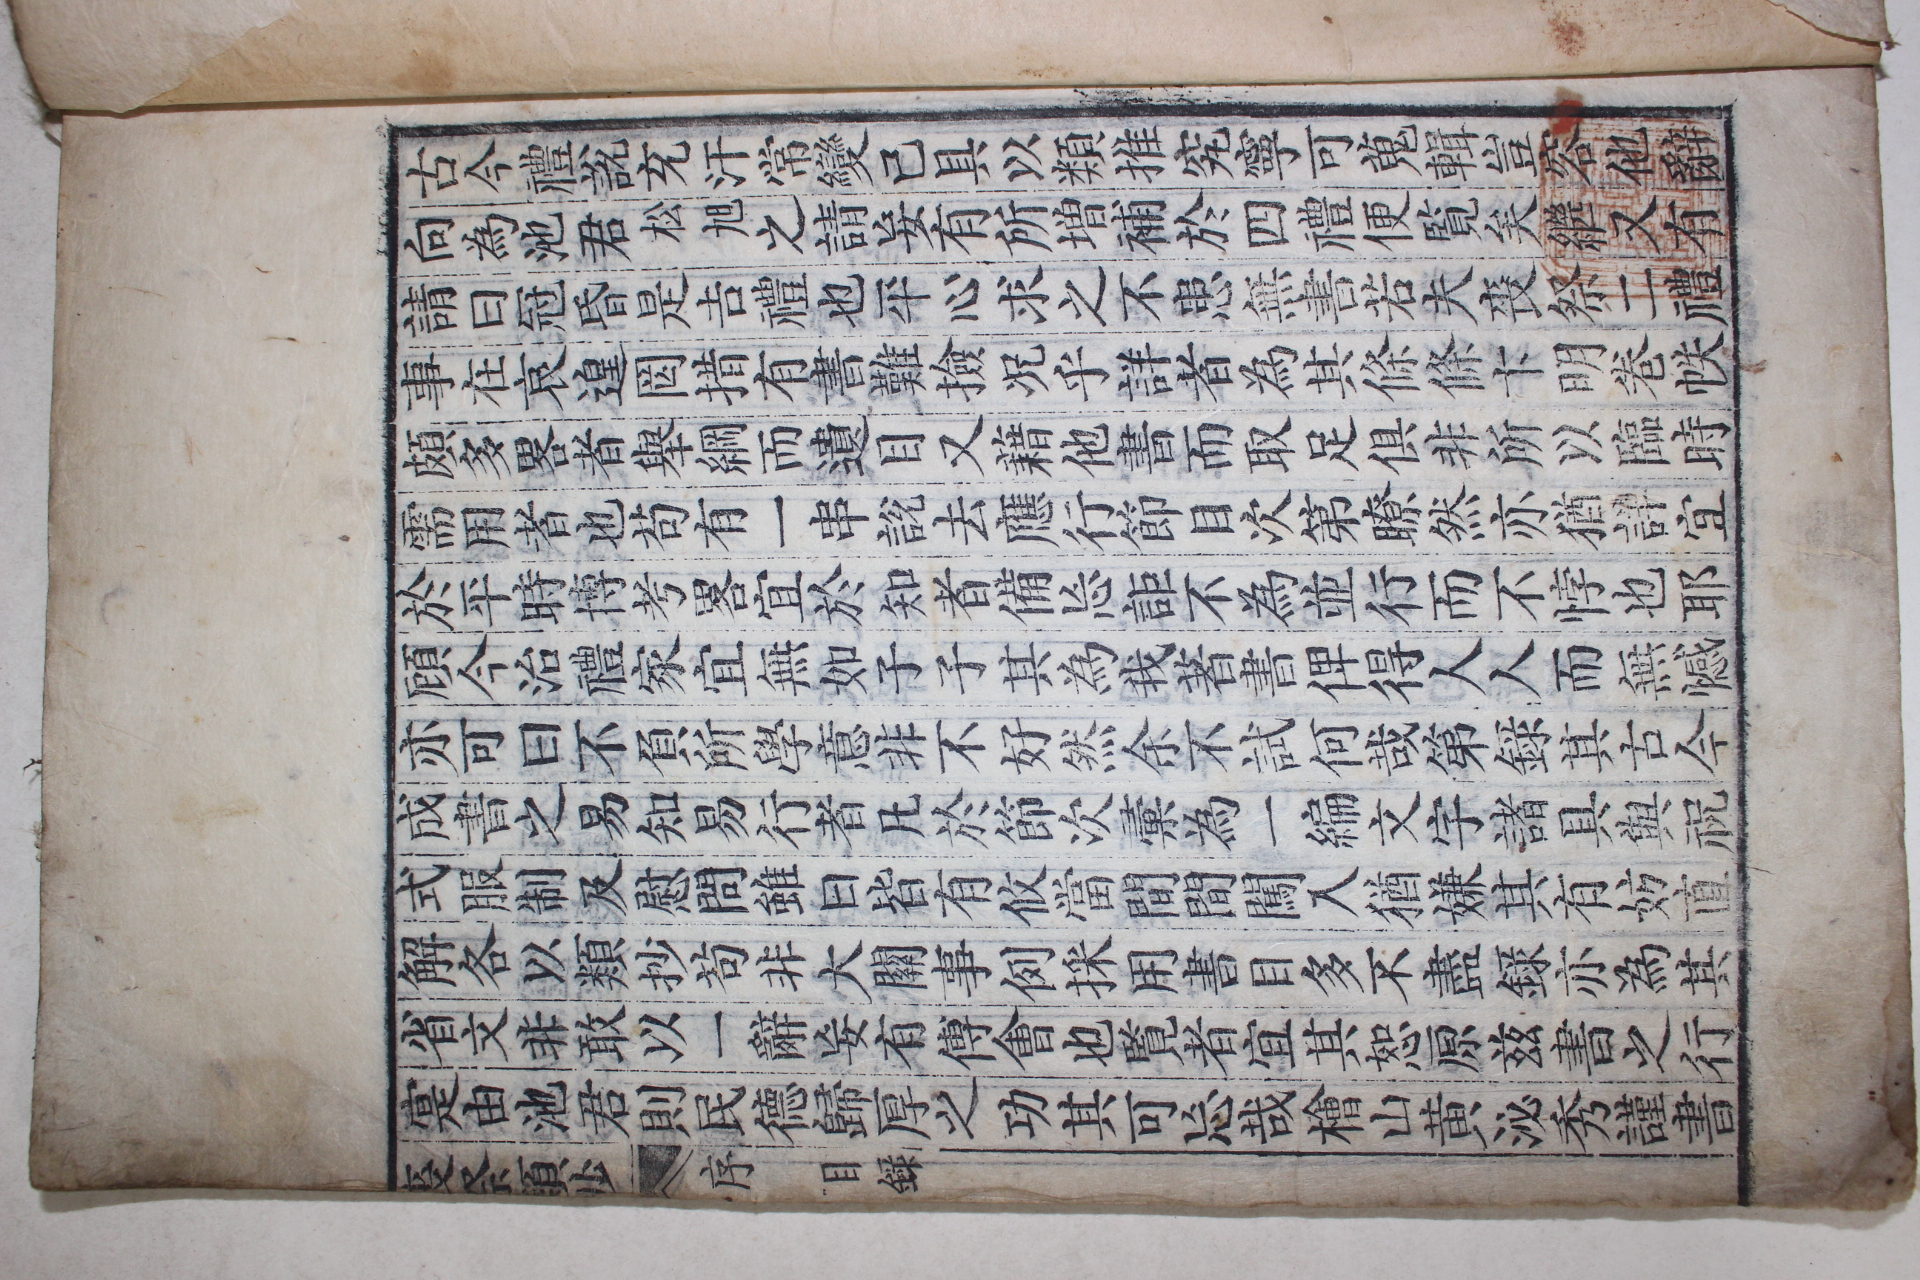 古今禮說充汗常變已具以類推究寧可蒐輯豈容他辭
向為池君松旭之請妄有所增補於四禮便覧矣繼又有
請曰冠昏是吉禮也平心求之不患無書若夫喪祭二禮
事在哀遑罔措有書難撿况乎詳者為其條條卞明卷帙
頗多畧者舉綱而遺目又藉他書而取足俱非所以臨時
需用者也苟有一串說去應行節目次第瞭然亦猶詳宜
於平時博考畧宜於知者備忘詎不為並行而不悖也耶
顧今治禮家宜無如子子其為我著書俾得人人而無憾
亦可曰不負所學意非不好然余不試何哉第錄其古今
成書之易知易行者凡於節次彙為一編文字諸具與祝
式服制及慰問雖曰皆有攸當間間闖入猶嫌其有妨直
解各以類抄苟非大關事例採用書目多不盡錄亦為其
省文非敢以一辭妄有傅會也覧者宜其恕原玆書之行
寔由池君則民德歸厚之功其可忘哉檜山黃泌秀謹書
喪祭類抄 序 目錄